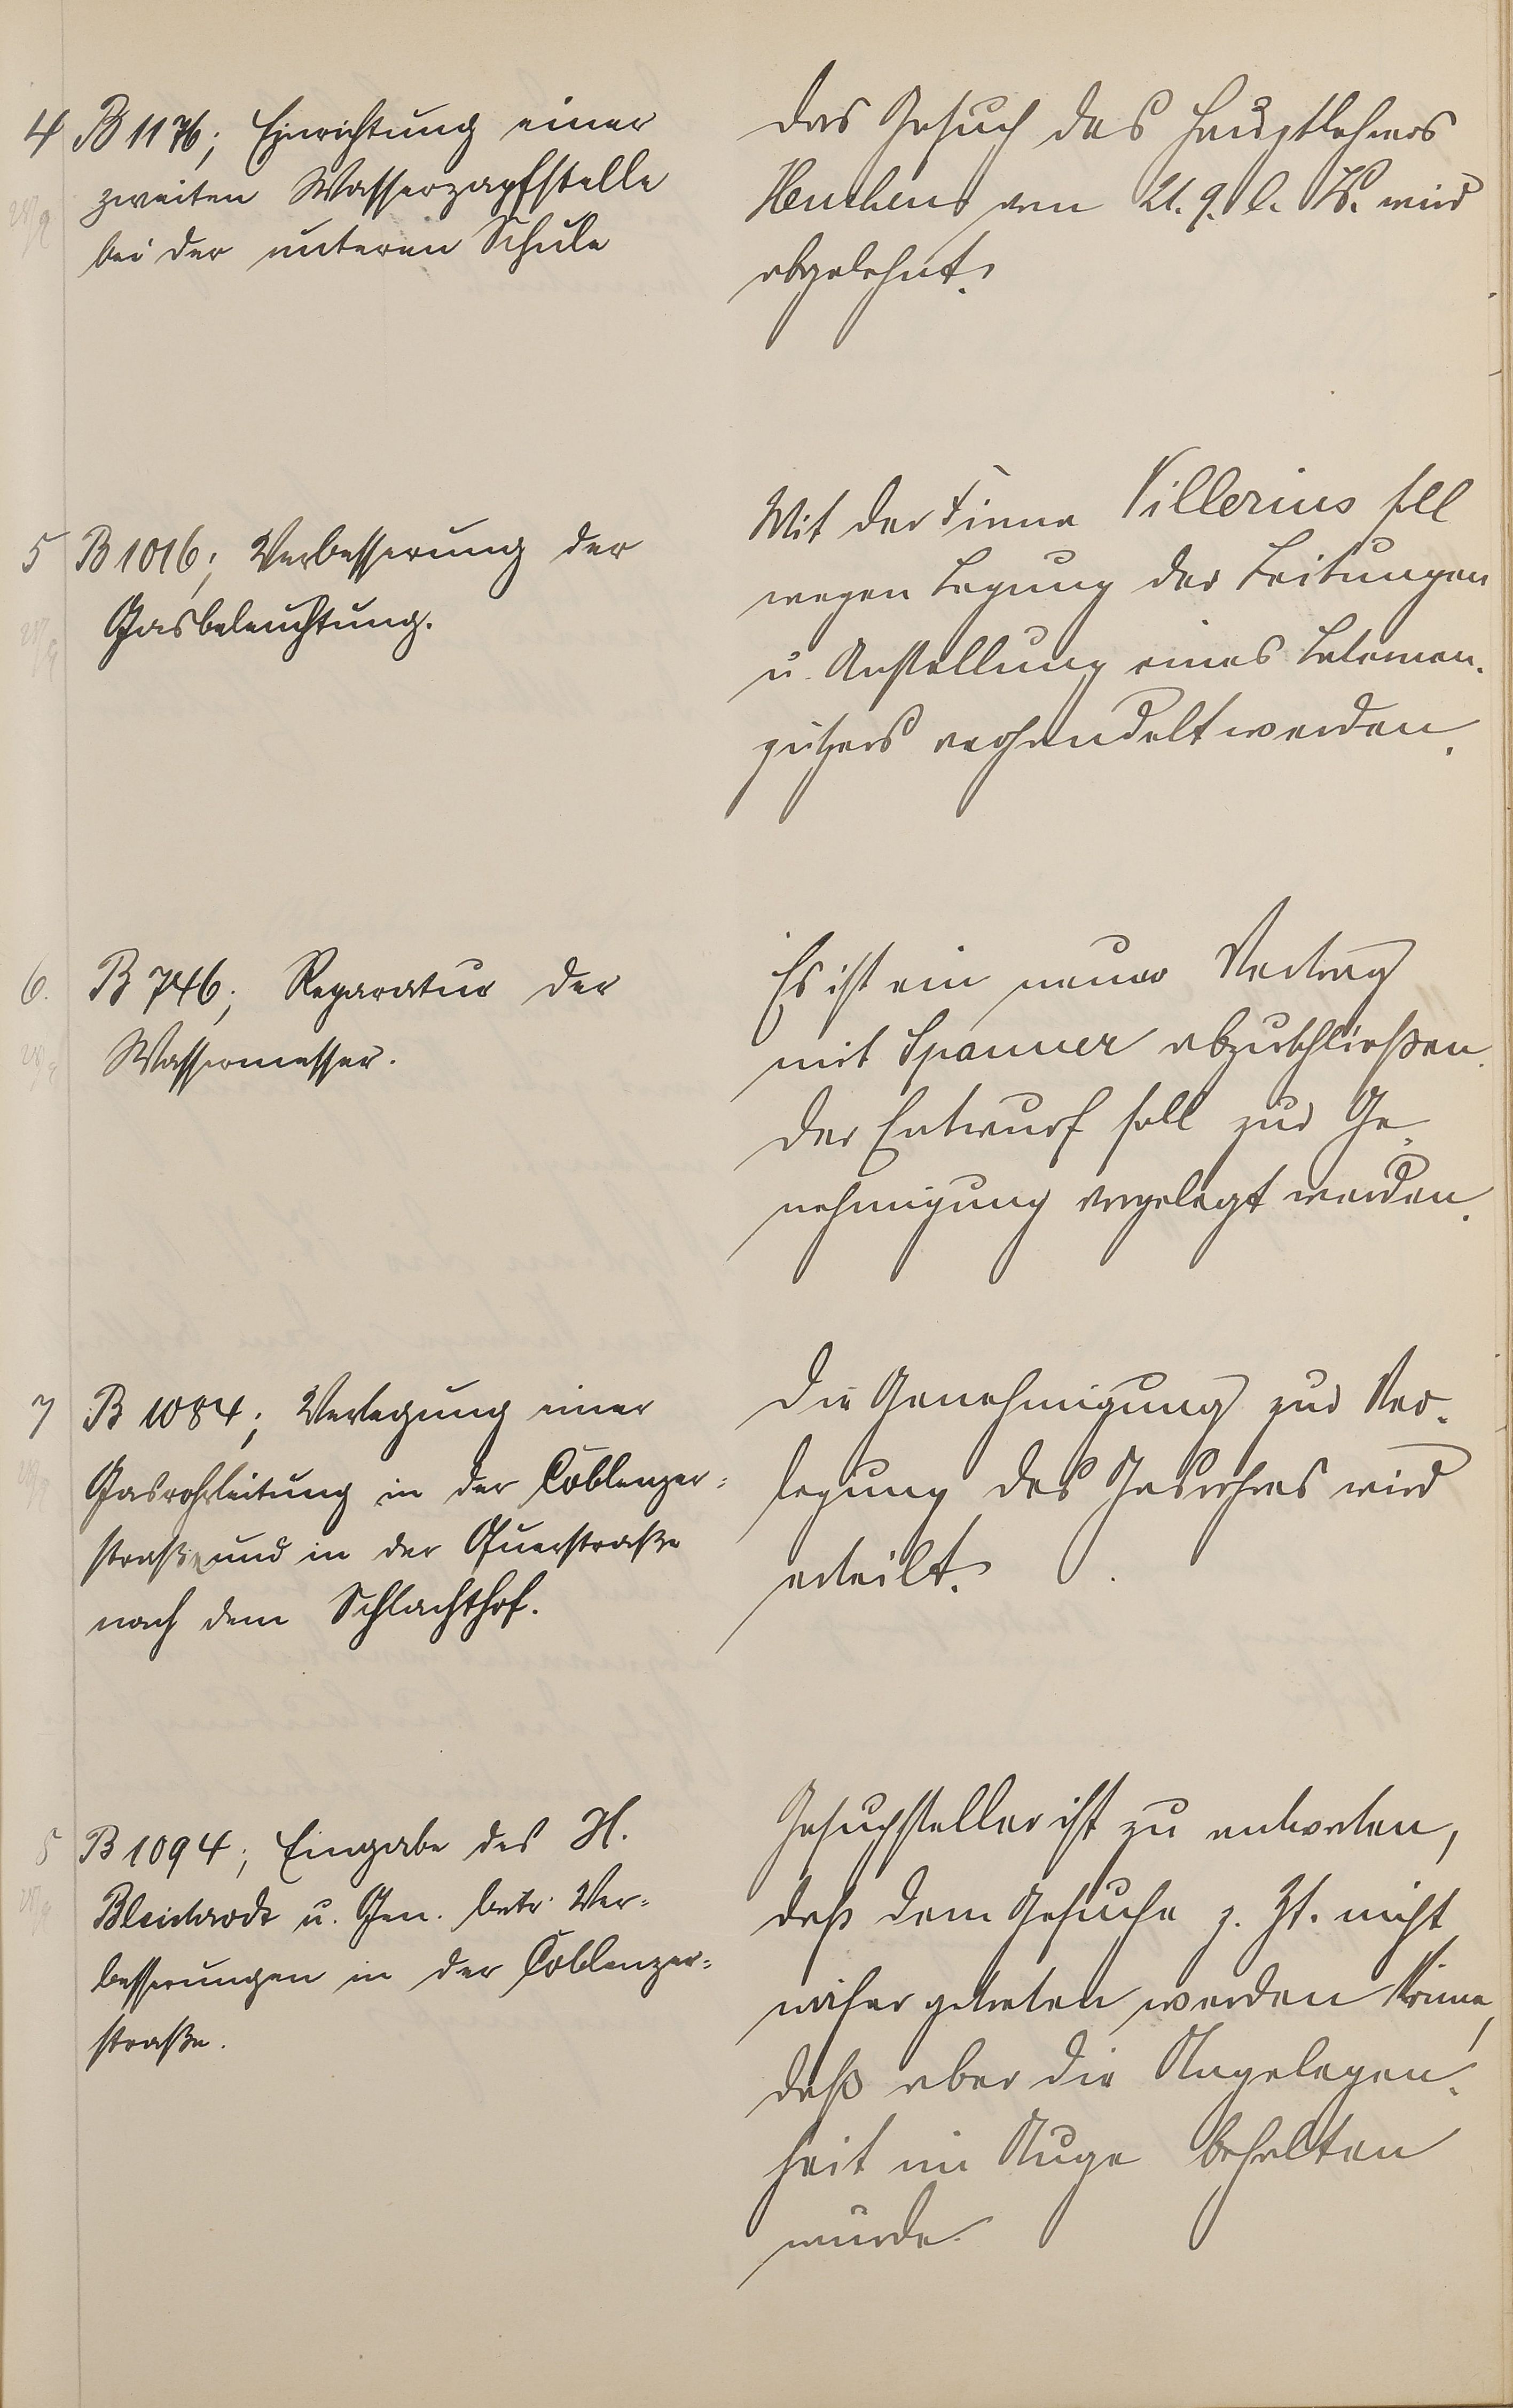 4 B 1176; Einrichtung einer
zweiten Wasserzapfstelle
bei der unteren Schule
Das Gesuch des Hauptlehrers
vom 21. 9. l. Js. wird
abgelehnt.
5 B 1016; Verbesserung der
Gasbeleuchtung.
Mit der Firma Villerius soll
wegen Legung der Leitungen
u. Anstellung eines Laternen-
putzers verhandelt werden.
6. B 746; Reparatur der
Wassermesser.
Es ist ein neuer Vertrag
mit Spanner abzuschließen.
Der Entwurf soll zur Ge-
nehmigung vorgelegt werden.
7 B 1084; Verlegung einer
Gasrohrleitung in der Coblenzer-
straße und in der Querstraße
nach dem Schlachthof.
Die Genehmigung zur Ver-
legung des Gasrohres wird
erteilt.
8 B 1094; Eingabe des H.
u. Gen. betr. Ver-
besserungen in der Coblenzer-
straße.
Gesuchsteller ist zu antworten,
daß dem Gesuche z. Zt. nicht
näher getreten werden könne,
daß aber die Angelegen-
heit im Auge behalten
würde.